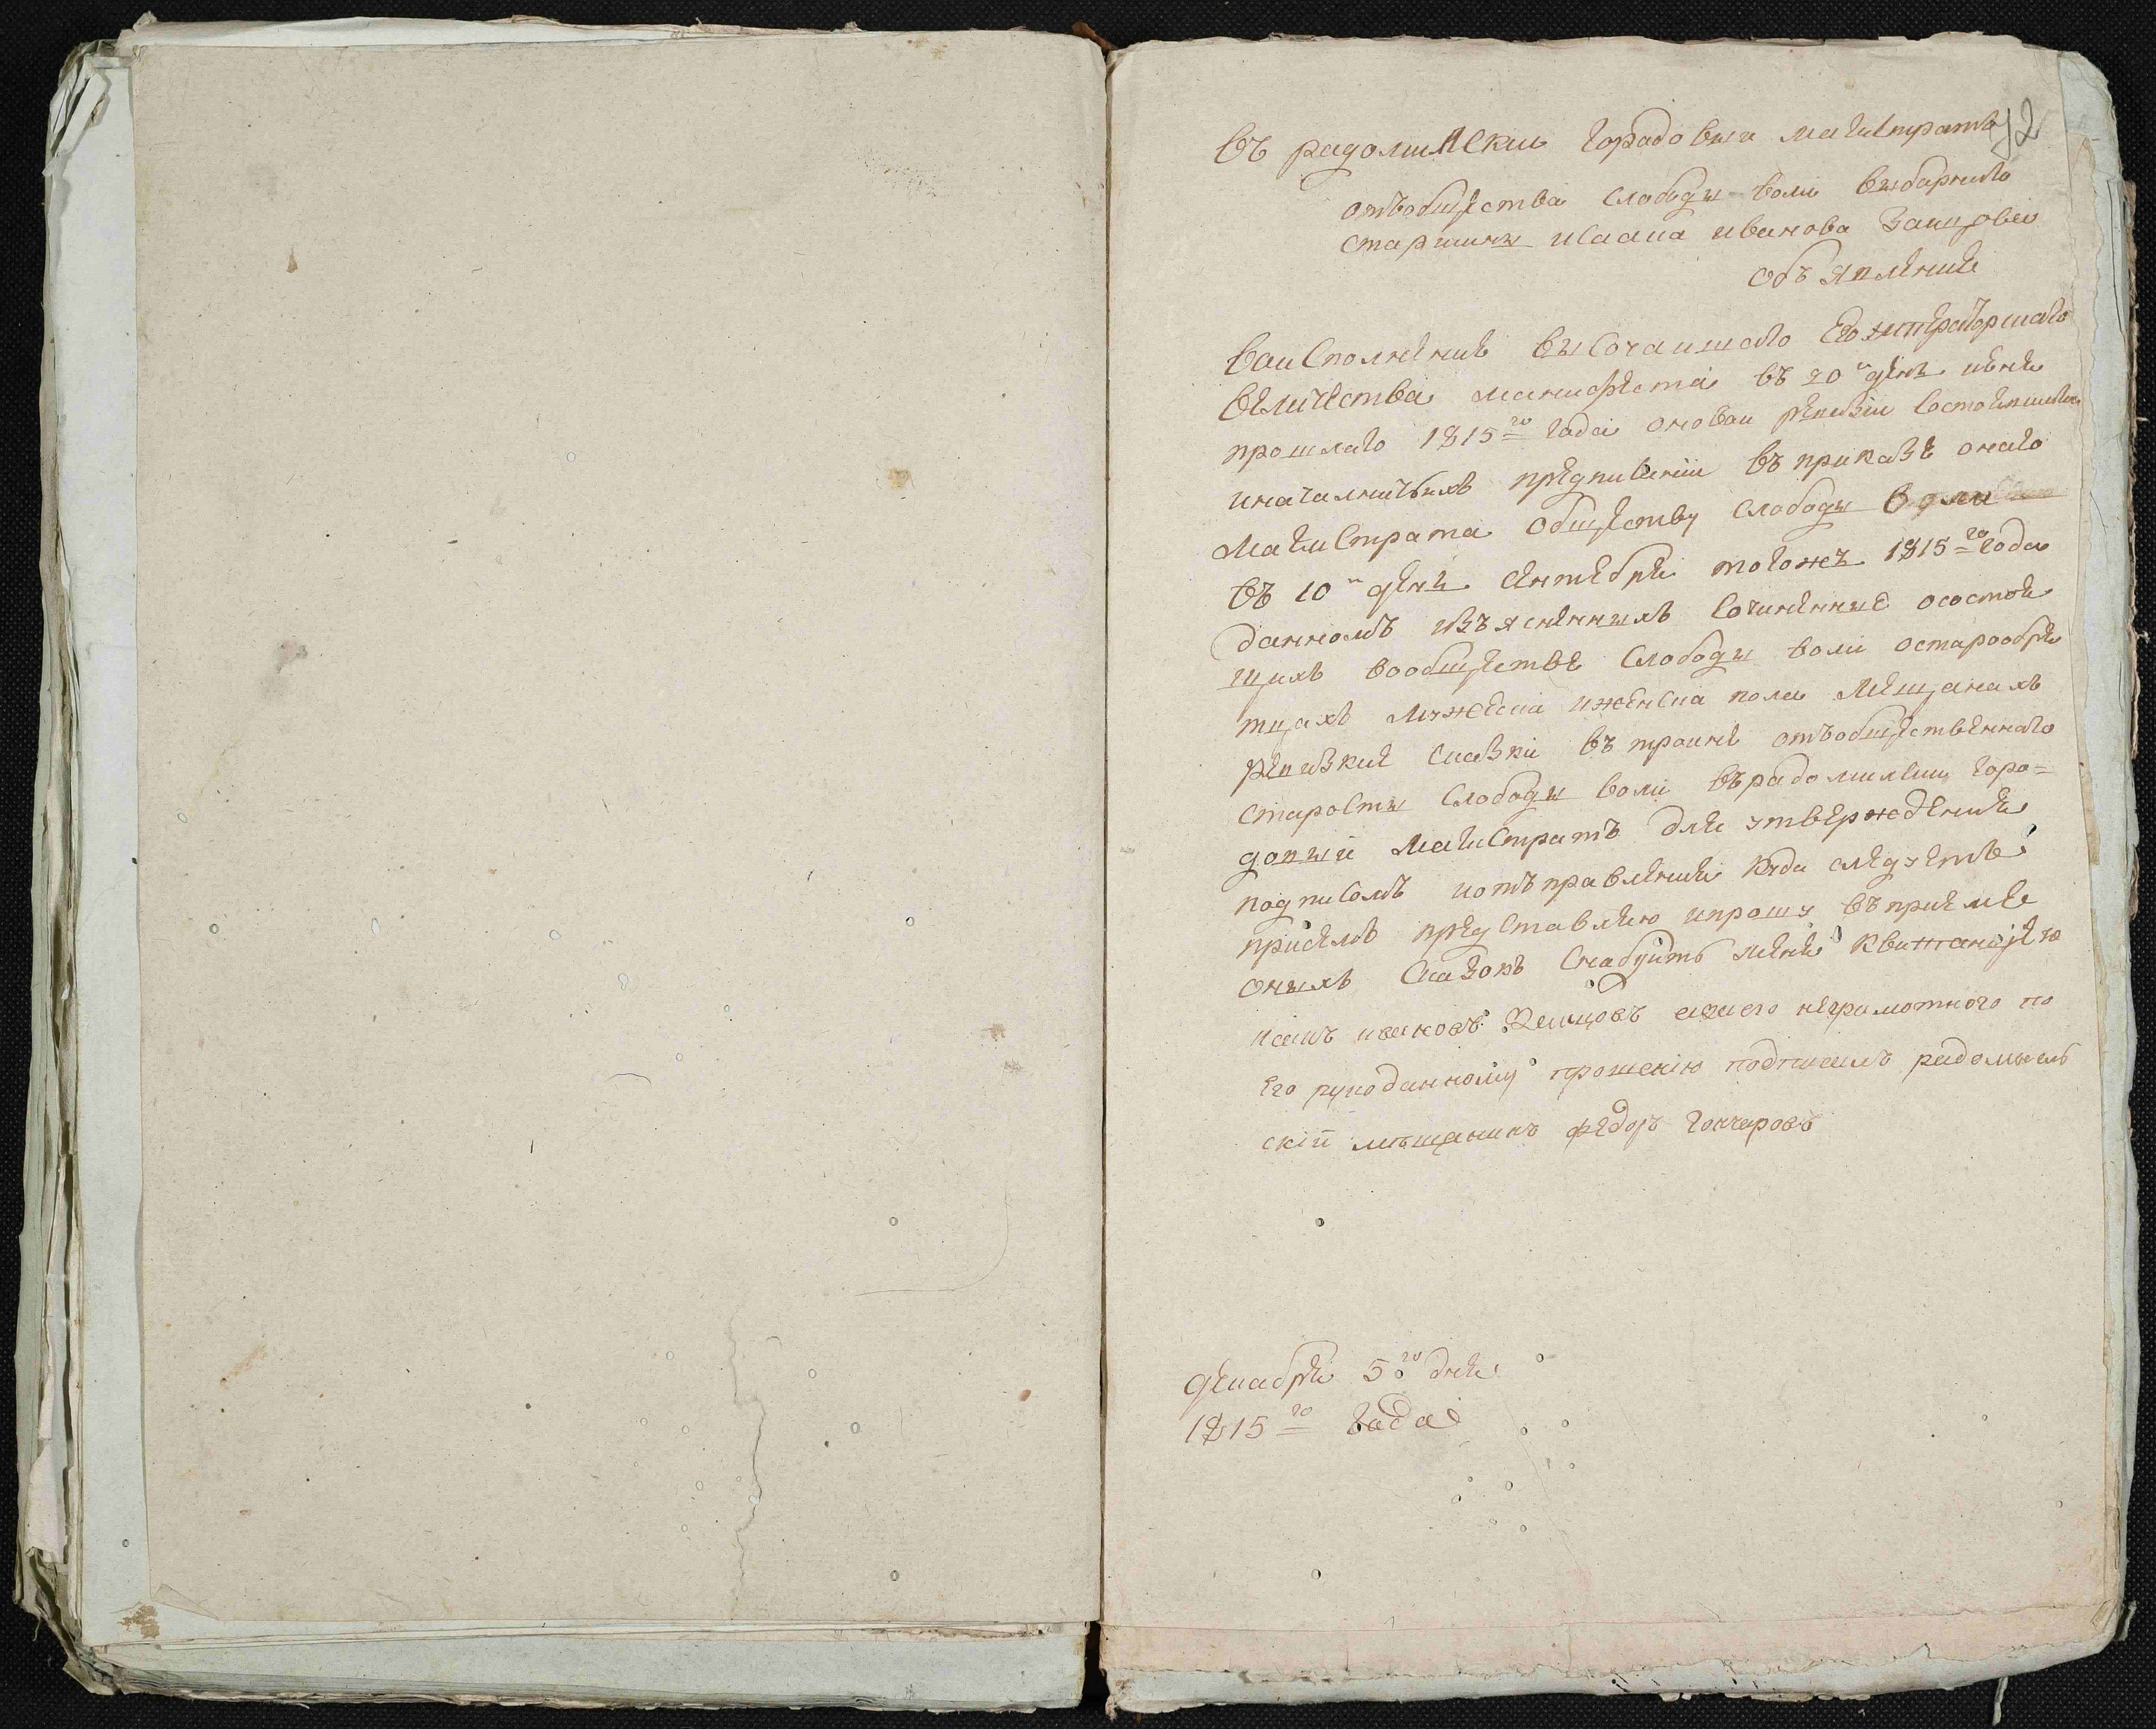 92
въ радомилскии Городовыи магистратъ
отъобщества Слободы воли выбарнаго
старшины исаака иванова Заицова
объявление
Воисполнение высочаишаго Его императорскаго
величества манифеста въ 20 и день июня
прошлаго 1815 го Года оновои ревизии состоявшагося
иначалничъихъ предписании въ приказе онаго
магистрата обществу слободы воли
въ 10 и день сентября тогожъ 1815 го Года
данномъ изъясненныхъ сочиненные осостоя
щихъ вообществе Слободы воли остарообря
тцахъ мужеска ижонска пола мещанахъ
ревизкие сказки въ троине отъобщественнаго
старосты Слободы воли върадомилскии Горо=
довыи Магистратъ для утверждения
подписомъ иотъправления куда следуетъ
присемъ представляю ипрошу въприеме
оныхъ сказокъ снабдить меня квитанциею
исакъ ивановъ Заицовъ аза его неграмотного по
его рукоданному прошению подписалъ радомысль
скій мѣщанинъ федоръ Гончаровъ
декабря 5 го дня
1815 го Года